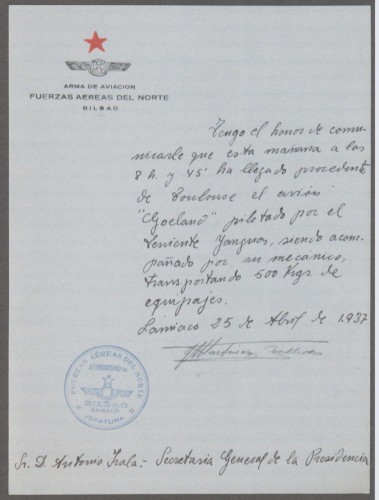 ARMA DE AVIACION
FUERZAS AEREAS DEL NORTE
BILBAO
Tengo el honor de comu-
nicarle que esta mañana a las
8 h. y 45' ha llegado procedente
de Toulouse el avión
"Goeland" pilotado por el
Teniente Yanguas, siendo acom-
pañado por su mecánico,
transportando 500 Kgs. de
equipajes.
Lamiaco 25 de Abril de 1.937
FUERZAS AEREAS DEL NORTE
AERODROMO
BILBAO
LAMIACO
JEFATURA
Sr. D. Antonio Irala.- Secretaria General de la Presidencia